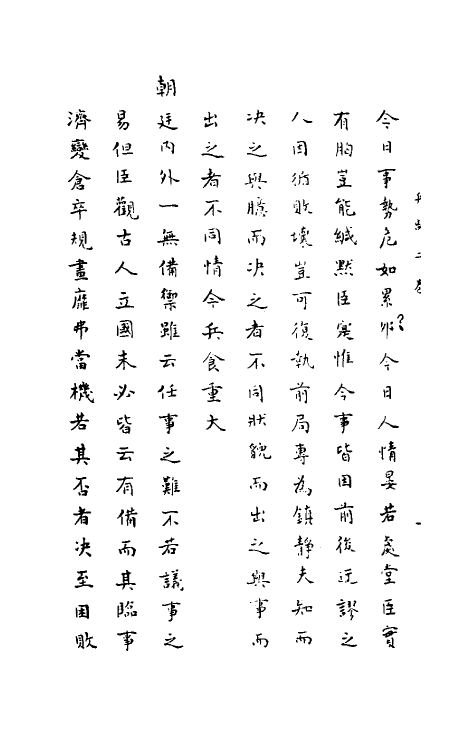 今日事勢危如累卵今日人情晏若處堂臣實
有胸豈能緘默臣寔惟今事皆因前後迃謬之
人因循敗壞豈可復執前局專為鎮靜夫知而
决之與臆而决之者不同狀貌而出之與事而
出之者不同情今兵食重大
朝廷内外一無備禦雖云任事之難不若議事之
易但臣觀古人立國未必皆云有備而其臨事
濟變倉卒規畫靡弗當機若其否者决至困敗